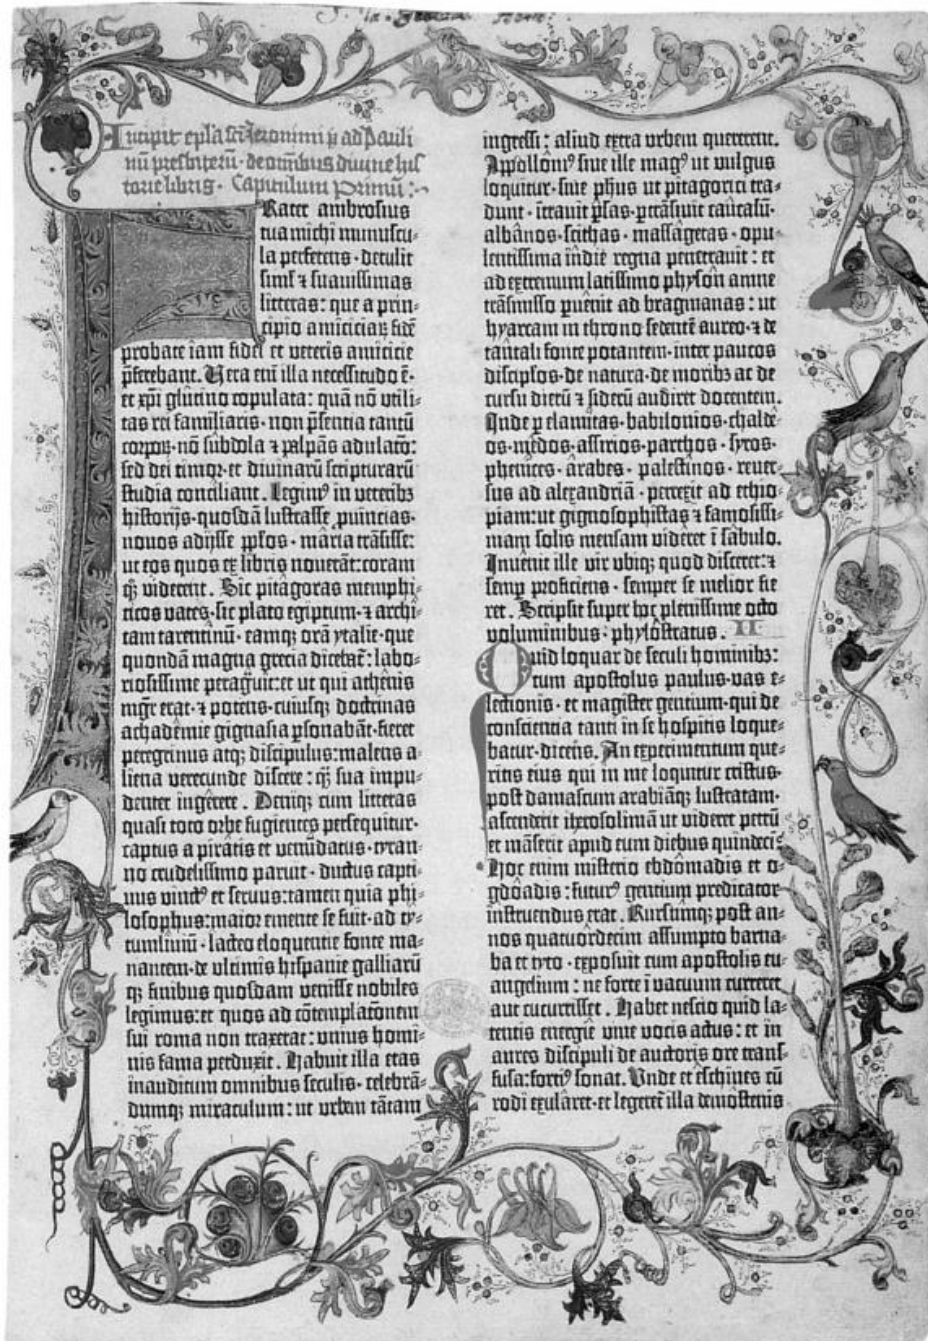 Incipit epl'a sc̄i Ieronimi p̄ ad Pauli
nū presbiterū · de om̄ibus diuine his
torie libris · Capitulum Primū :
FRater ambrosius
tua michi munuscu⸗
la perferens · detulit
siml' ⁊ suauissimas
litteras : que a prin⸗
cipio amiciciaꝝ fidē
probate iam fidei et veteris amicicie
p̄ferebant. Uera em̄ illa necessitudo ē ·
et xp̄i glutino copulata : quā nō vtili⸗
tas rei familiaris · non p̄sentia tantū
corpoꝝ · nō subdola ⁊ palpās adulatō :
sed dei timor · et diuinarū scripturarū
studia conciliant. Legimꝰ in veteribꝫ
historijs · quosdā lustrasse ꝓuincias ·
nouos adijsse ppl'os · maria trāsisse :
ut eos quos ex libris nouerāt : coram
qꝫ viderent. Sic pitagoras memphi⸗
ticos vates · sic plato egiptum · ⁊ archi⸗
tam tarentinū · eamqꝫ orā ytalie · que
quondā magna grecia dicebat᷑ : labo⸗
riosissime peragrāuit : et ut qui athēnis
mgr̄ erat · ⁊ potens · cuiusqꝫ doctrinas
achadēmie gignasia ꝑsonabāt · fieret
peregrinus atqꝫ discipulus : malens a⸗
liena verecunde discere : qꝫ sua impu⸗
denter ingērere. Deniqꝫ cum litteras
quasi toto orbe fugientes persequitur ·
captus a pirātis et venūdatus · tyran⸗
no crudelissimo paruit · ductus capti⸗
uus vinctꝰ et seruus : tamen quia phi⸗
losophus : maior emente se fuit · ad ty⸗
tumliuiū · lacteo eloquentie fonte ma⸗
nantem · de vltimis hispanie galliarū
qꝫ finibus quosdam venisse nobiles
legimus : et quos ad cōtemplatōnem
sui roma non traxerat : vnius homi⸗
nis fama perduxit. Habuit illa etas
inauditum omnibus seculis · celebrā⸗
dumqꝫ miraculum : ut vrbem tātam
ingressi : aliud extra vrbem quererent.
Appolloniꝰ siue ille magꝰ ut vulgus
loquitur · siue ph̄us ut pitagorici tra⸗
dunt · ītrauit ꝑsas · ꝑtrāsiuit caūcasū ·
albānos · scithas · massāgetas · opu⸗
lentissima īndie regna penetrauit : et
ad extremum latissimo physōn amne
trāsmisso ꝑuēnit ad bragmanas : ut
hyarcam in throno sedentē aureo · ⁊ de
tāntali fonte potantem · inter paucos
discipl'os · de natura · de moribꝫ ac de
cursu dierū ⁊ siderū audiret docentem.
Inde ꝑ elamitas · babilonios · chaldē⸗
os · mēdos · assirios · parthos · syros ·
phenices · ārabes · palestīnos · reuer⸗
sus ad alexandriā · perrexit ad ethio⸗
piam : ut gignosophistas ⁊ famosissi⸗
mam solis mensam videret ī sābulo.
Inuēnit ille vir vbiqꝫ quod disceret : ⁊
semꝑ proficiens · semper se melior fie
ret. Scripsit super hoc plenissime octo
voluminibus · phylōstratus. II
Quid loquar de seculi hominibꝫ :
cum apostolus paulus · vas e⸗
lectionis · et magister gentium · qui de
conscientia tanti in se hospitis loque⸗
batur · dicēns. An experimentum que⸗
ritis eius qui in me loquitur cristus ·
Post damascum arabiāqꝫ lustratam ·
ascenderit iherosolimā ut videret petrū
et māserit apud eum diebus quindecī ·
Hoc enim misterio ebdōmadis et o⸗
gdōadis : futurꝰ gentium predicator
instruendus erat. Rursūmqꝫ post an⸗
nos quatuōrdecim assumpto barna⸗
ba et tyto · exposuit cum apostolis eu⸗
angelium : ne forte ī vacuum curreret
aut cucurrisset. Habet nescio quid la⸗
tentis energie viue vocis actus : et in
aures discipuli de auctoris ore trans⸗
fusa : fortiꝰ sonat. Vnde et ēschines cū
rodi exulāret · et legeret᷑ illa demōstenis